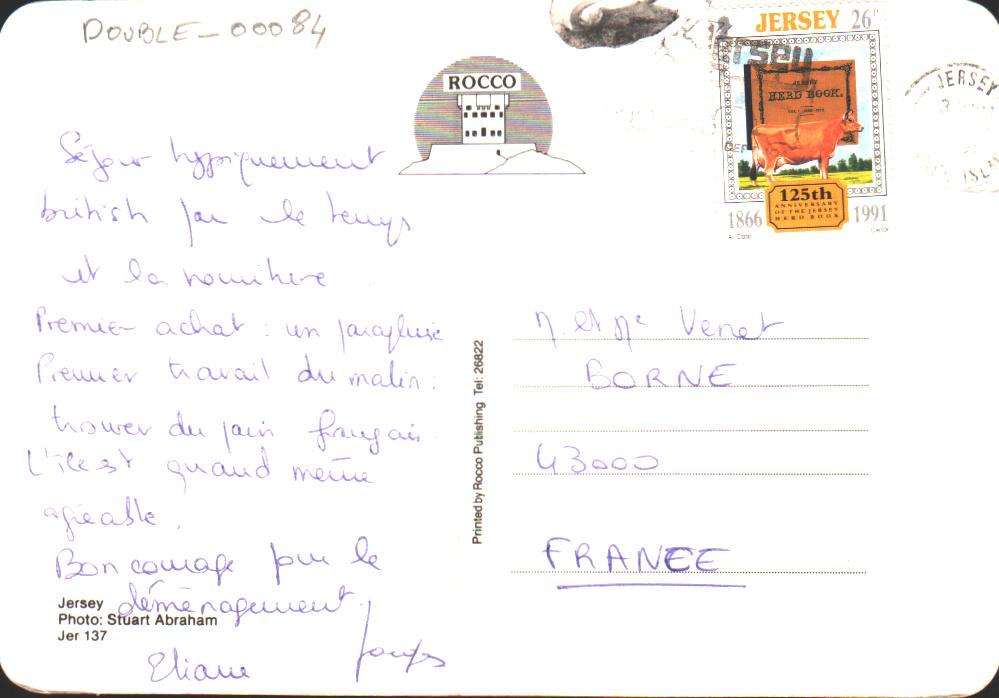 DOUBLE_00084
ROCCO
JERSEY 26p
JERSEY
HERD BOOK.
125th
ANNIVERSARY
OF THE JERSEY
HERD BOOK
1866 1991
JERSEY
Séjour typiquement
british par le temps
et la nourriture
Premier achat : un parapluie
Premier travail du matin :
trouver du pain français.
L'île est quand même
agréable.
Bon courage pour le
déménagement
Eliane
Jersey
Photo: Stuart Abraham
Jer 137
Printed by Rocco Publishing Tel: 26822
M. et Me Venet
BORNE
43000
FRANCE